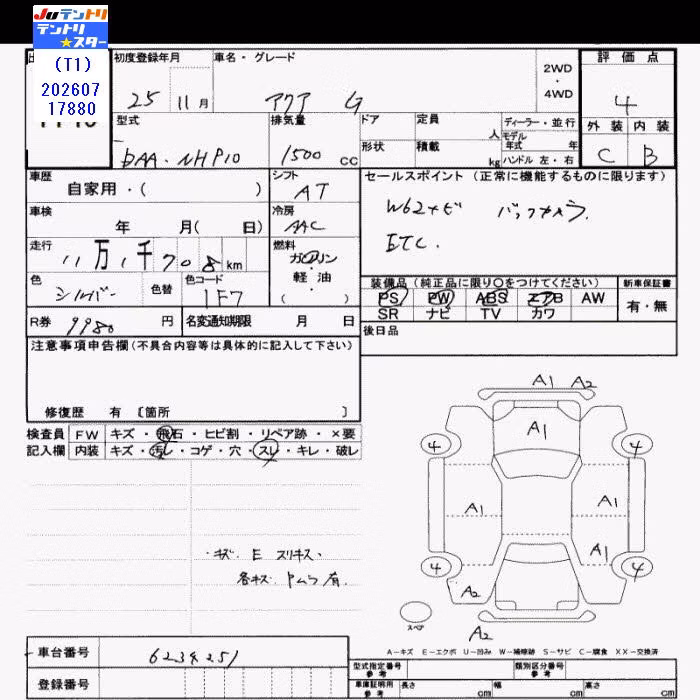 JUテントリ
テントリ
★スター
(T1)
202607
17880
初度登録年月
車名・グレード
2WD
・
4WD
評価点
25 11月
アクア G
4
型式
排気量
ドア
定員
人
ディーラー・並行
モデル
年式 年
外装 内装
DAA-NHP10
1500 cc
形状
積載
kg
ハンドル 左・右
C B
車歴
自家用・( )
シフト
AT
セールスポイント (正常に機能するものに限ります)
車検
年 月( 日)
冷房
AAC
W62ナビ バックカメラ.
ETC.
走行
11万1千708km
燃料
ガソリン
・
軽・油
( )
色
シルバー
色替
色コード
1F7
装備品 (純正品に限り○をつけてください)
新車保証書
PS PW ABS エアB AW
有・無
SR ナビ TV カワ
R券
9980 円
名変通知期限 月 日
後日品
注意事項申告欄(不具合内容等は具体的に記入して下さい)
修復歴 有 〔箇所 〕
検査員 FW キズ・飛石・ヒビ割・リペア跡・×要
記入欄 内装 キズ・汚レ・コゲ・穴・スレ・キレ・破レ
A1 A2
A1
4 4
A1 A1
A1
4 4
A2
A2
スペア
・キズ E スリキズ・
各キズ 有
A-キズ E-エクボ U-凹み W-補修跡 S-サビ C-腐食 XX-交換済
車台番号
6234251
登録番号
型式指定番号
参考
類別区分番号
参考
車庫証明用
参考
長さ cm
幅 cm
高さ cm